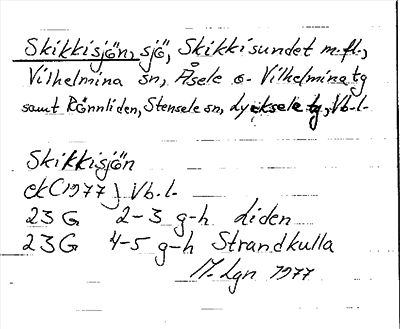 Skikkisjön, sjö, Skikkisundet m.fl.,
Vilhelmina sn, Åsele o. Vilhelmina tg
samt Rönnliden, Stensele sn, Lycksele tg, Vb.l.
Skikkisjön
ek (1977) Vb.l.
23 G 2-3 g-h Liden
23 G 4-5 g-h Strandkulla
M. Lgn 1977